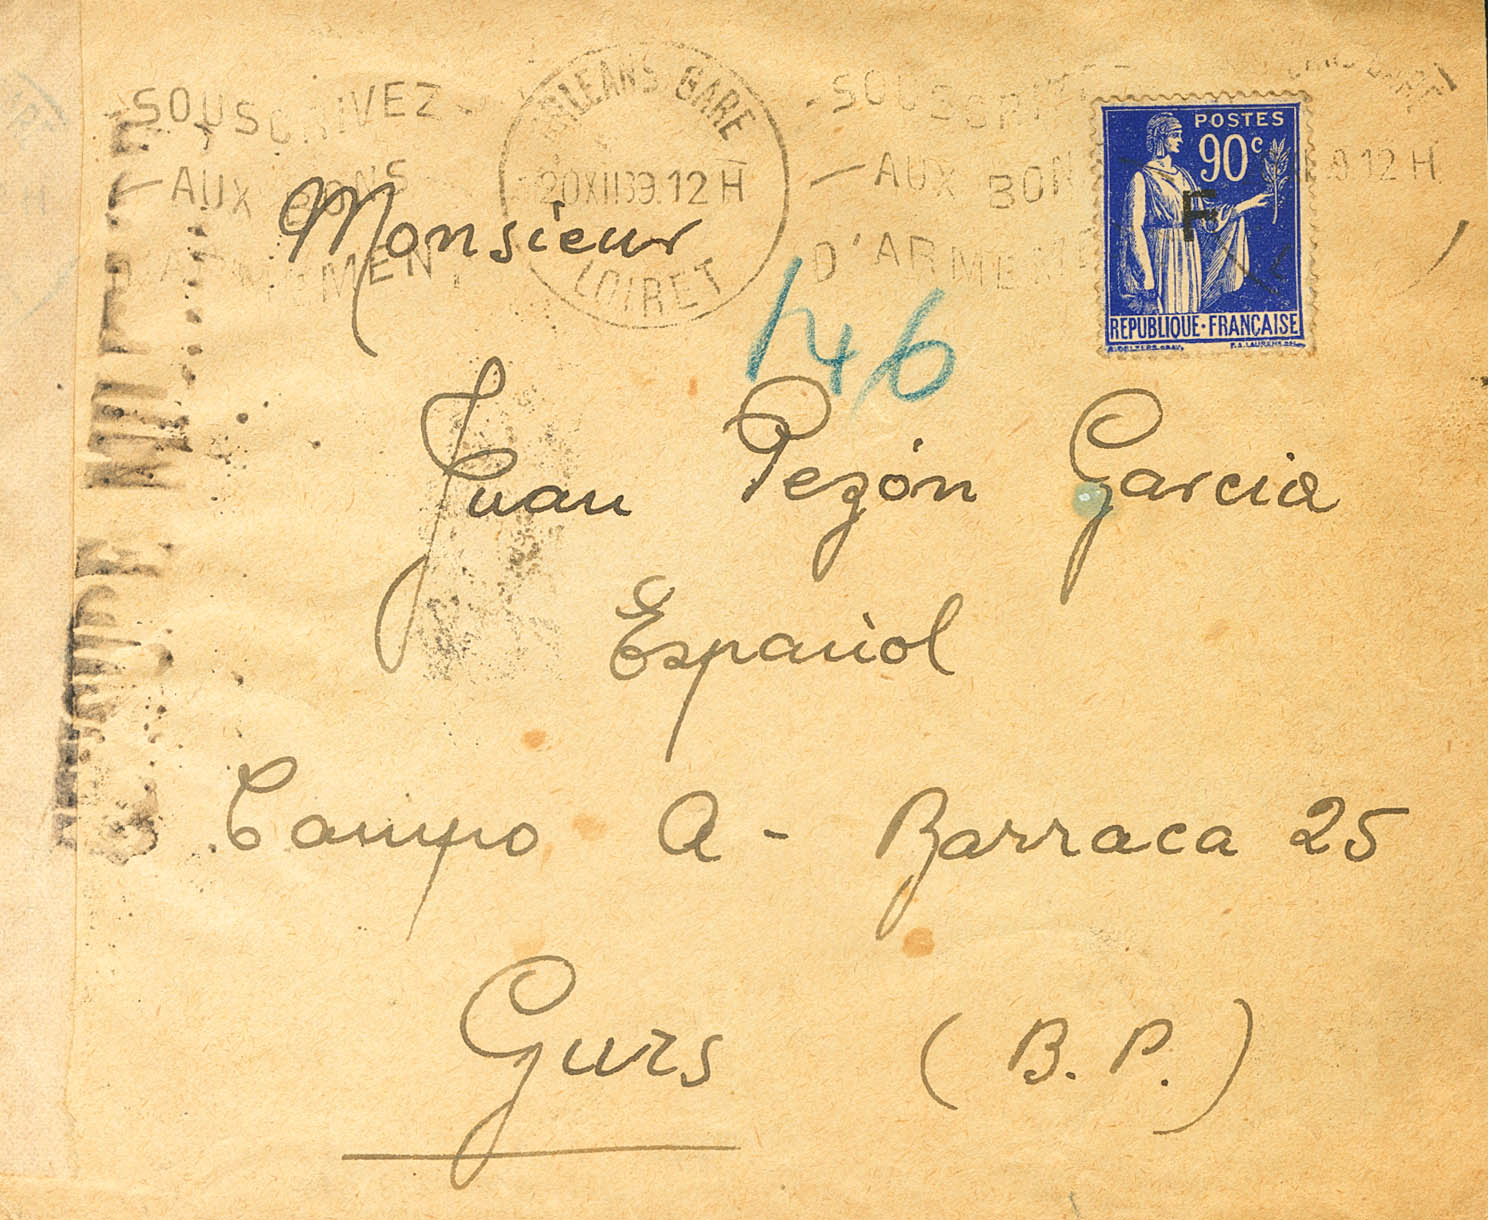 SOUSCRIVEZ
AUX BONS
D'ARMEMENT
ORLEANS GARE
20XII39.12 H
LOIRET
SOUSCRIVEZ
AUX BONS
D'ARMEMENT
9.12 H
POSTES
90c
F
REPUBLIQUE·FRANÇAISE
Monsieur
146
Juan Pezón Garcia
Español
Campo A - Barraca 25
Gurs (B. P.)